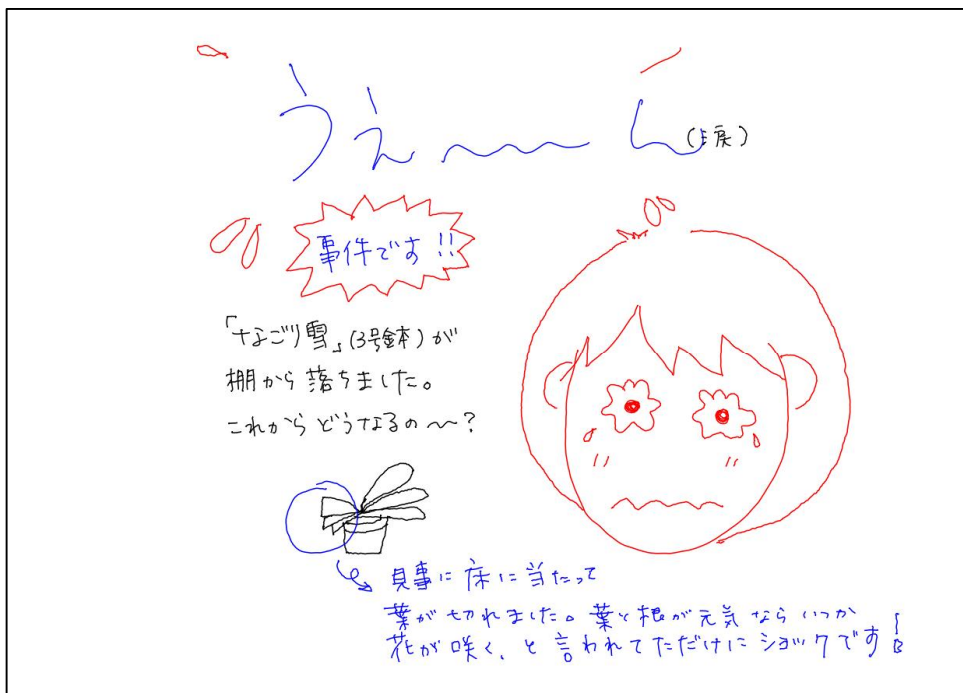 うえ〜〜ん(涙)
事件です!!
「なごり雪」(3号鉢)が
棚から落ちました。
これからどうなるの〜?
見事に床に当たって
葉が切れました。葉と根が元気ならいつか
花が咲く、と言われてただけにショックです